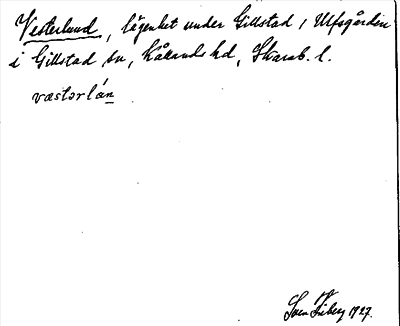 Vesterlund, lägenhet under Gillstad, Ulfsgården
i Gillstad sn, Kållands hd, Skarab. l.
væstərlán
Sven 1927.